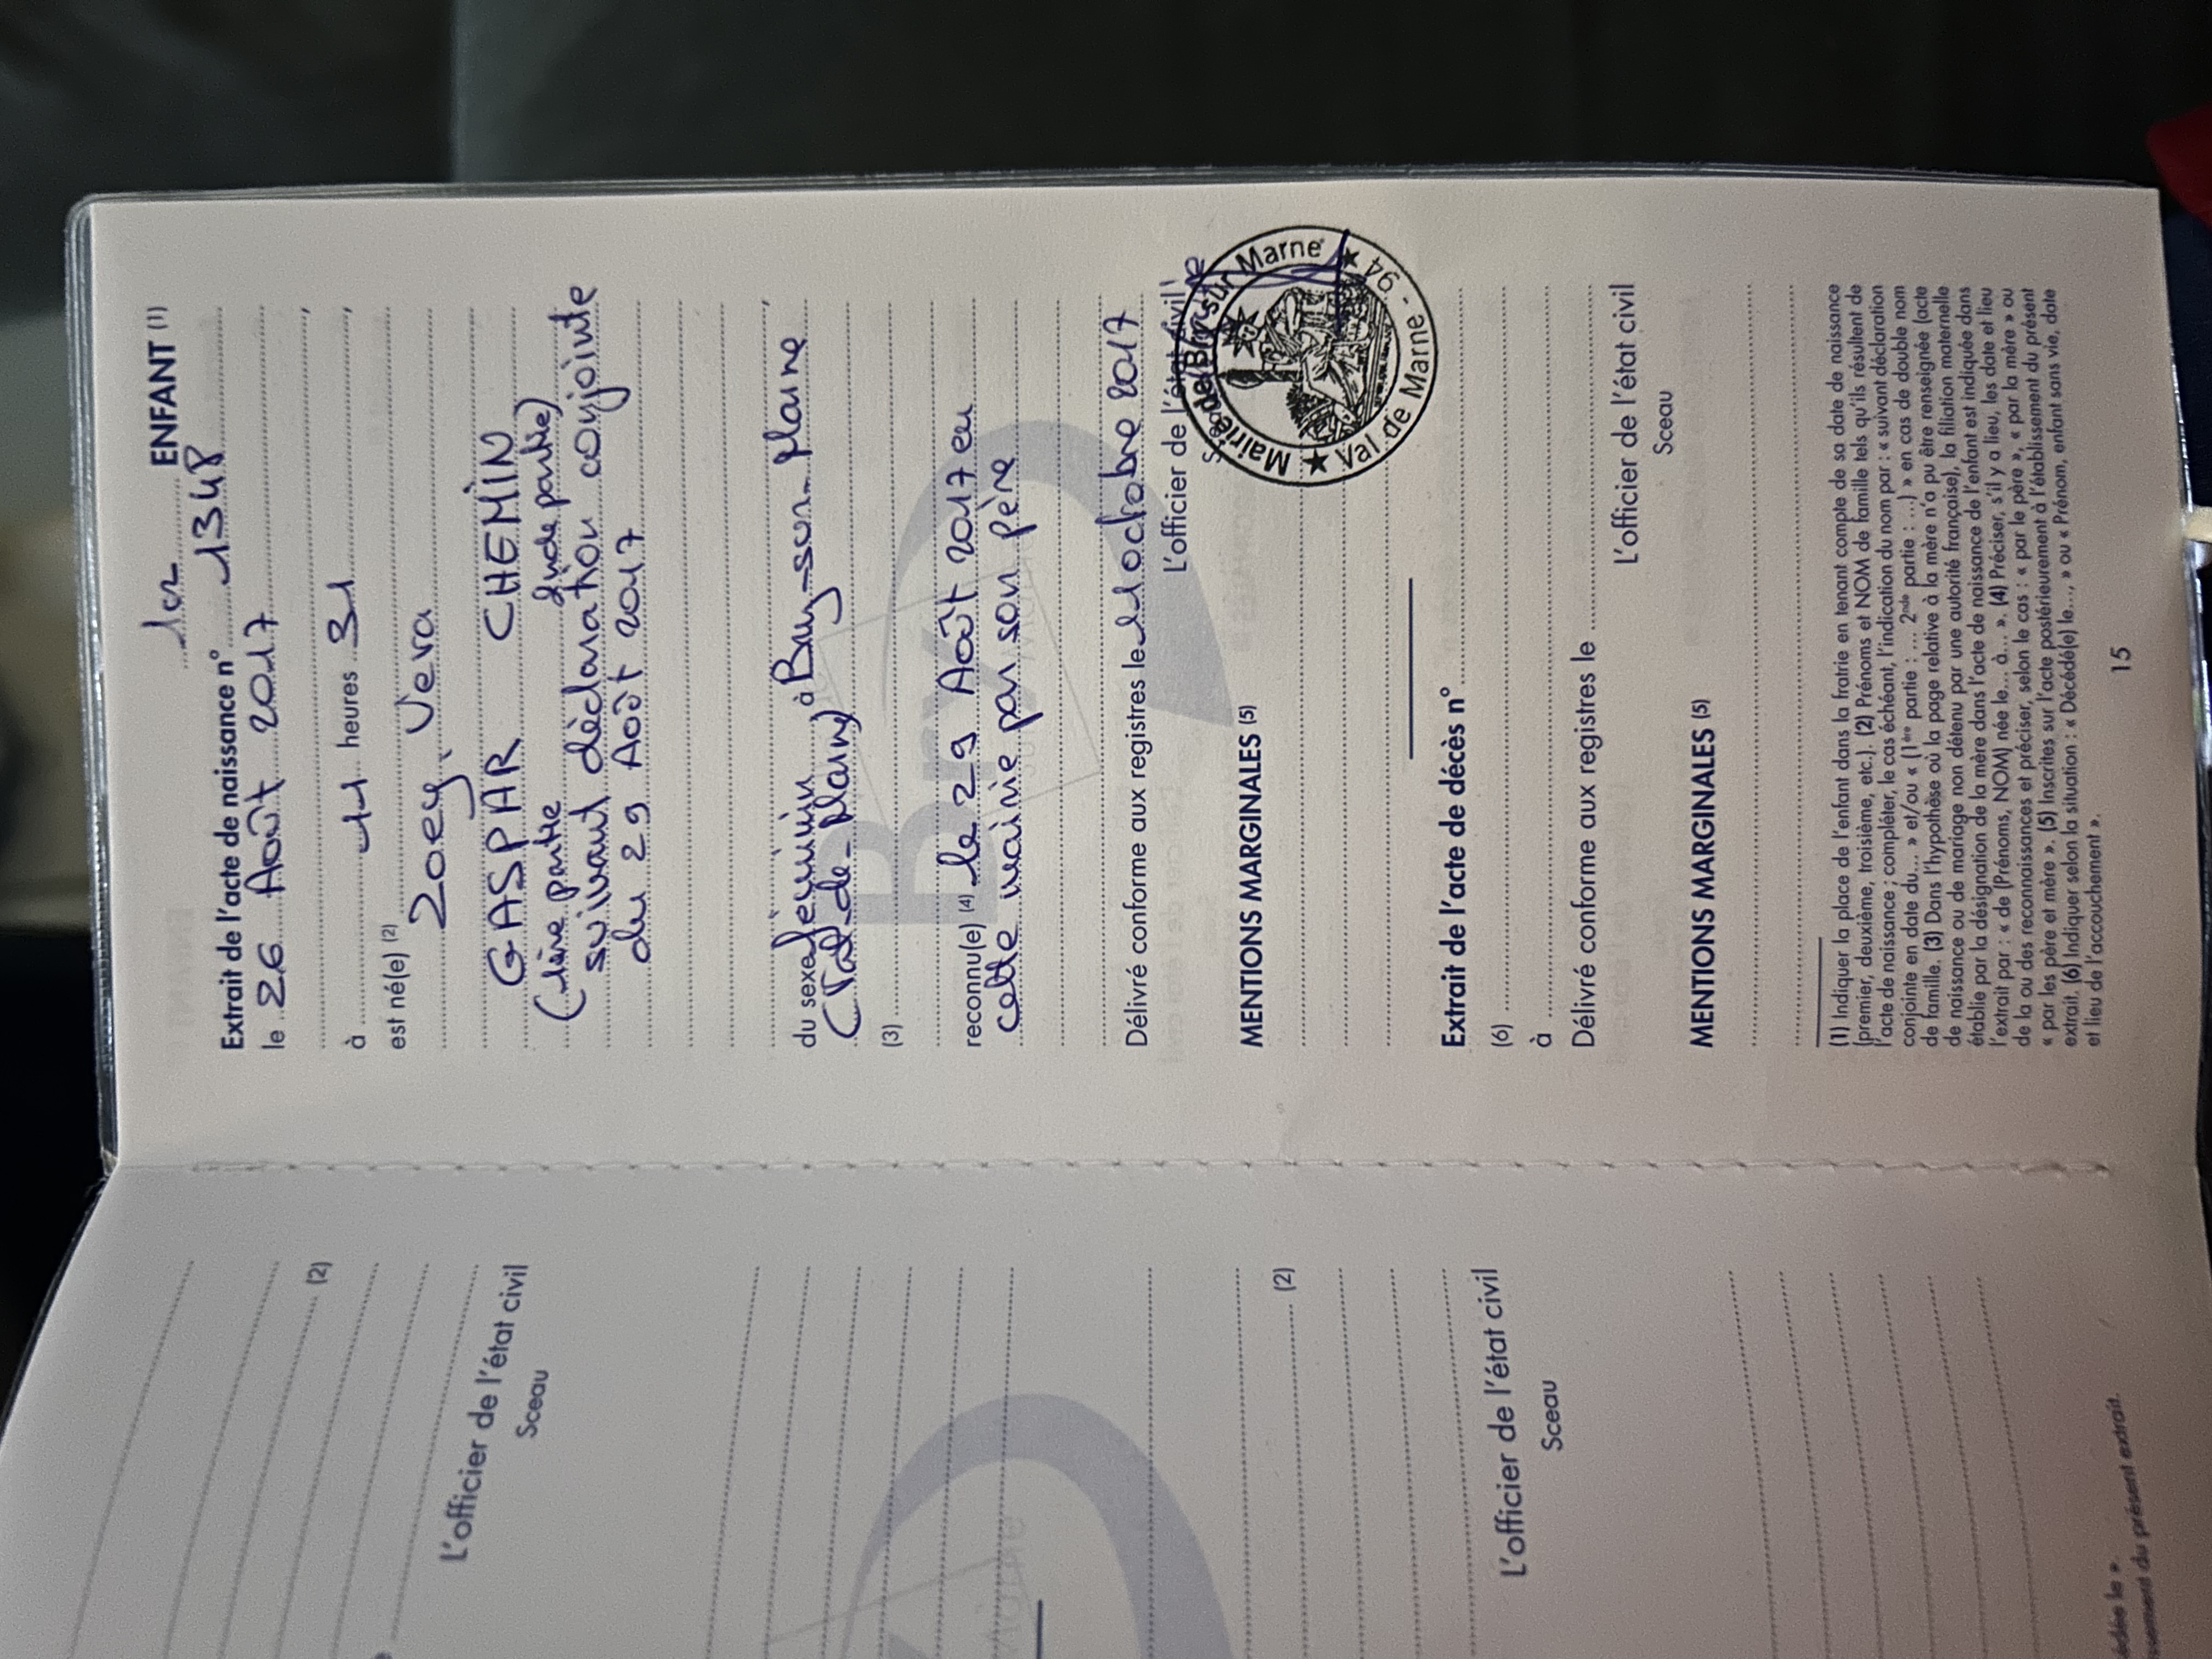 1er ENFANT (1)
Extrait de l'acte de naissance n° 1348
le 26 Août 2017
à 11 heures 31
est né(e) (2)
Zoey, Vera
GASPAR CHEMIN
(1ère partie 2nde partie)
suivant déclaration conjointe
du 29 Août 2017
du sexe féminin à Bry-sur-Marne
(Val-de-Marne)
(3)
reconnu(e) (4) le 29 Août 2017 en
cette mairie par son père
Délivré conforme aux registres le octobre 2017
L'officier de l'état civil
Mairie de Bry sur Marne
★ Val de Marne - 94 ★
MENTIONS MARGINALES (5)
Extrait de l'acte de décès n°
(6)
à
Délivré conforme aux registres le
L'officier de l'état civil
Sceau
MENTIONS MARGINALES (5)
(1) Indiquer la place de l'enfant dans la fratrie en tenant compte de sa date de naissance
(premier, deuxième, troisième, etc.). (2) Prénoms et NOM de famille tels qu'ils résultent de
l'acte de naissance ; compléter, le cas échéant, l'indication du nom par : « suivant déclaration
conjointe en date du... » et/ou « (1ère partie : ... 2nde partie : ...) » en cas de double nom
de famille. (3) Dans l'hypothèse où la page relative à la mère n'a pu être renseignée (acte
de naissance ou de mariage non détenu par une autorité française), la filiation maternelle
établie par la désignation de la mère dans l'acte de naissance de l'enfant est indiquée dans
l'extrait par : « de (Prénoms, NOM) née le... à... ». (4) Préciser, s'il y a lieu, les date et lieu
de la ou des reconnaissances et préciser, selon le cas : « par le père », « par la mère » ou
« par les père et mère ». (5) Inscrites sur l'acte postérieurement à l'établissement du présent
extrait. (6) Indiquer selon la situation : « Décédé(e) le..., » ou « Prénom, enfant sans vie, date
et lieu de l'accouchement ».
15
(2)
L'officier de l'état civil
Sceau
(2)
L'officier de l'état civil
Sceau
du présent extrait.